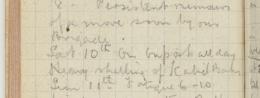 8. Persistent rumours
of a move soon by our
Brigade.
Sat 10th On outpost all day
Heavy shelling of
Sun 11th Fatigue 6-10